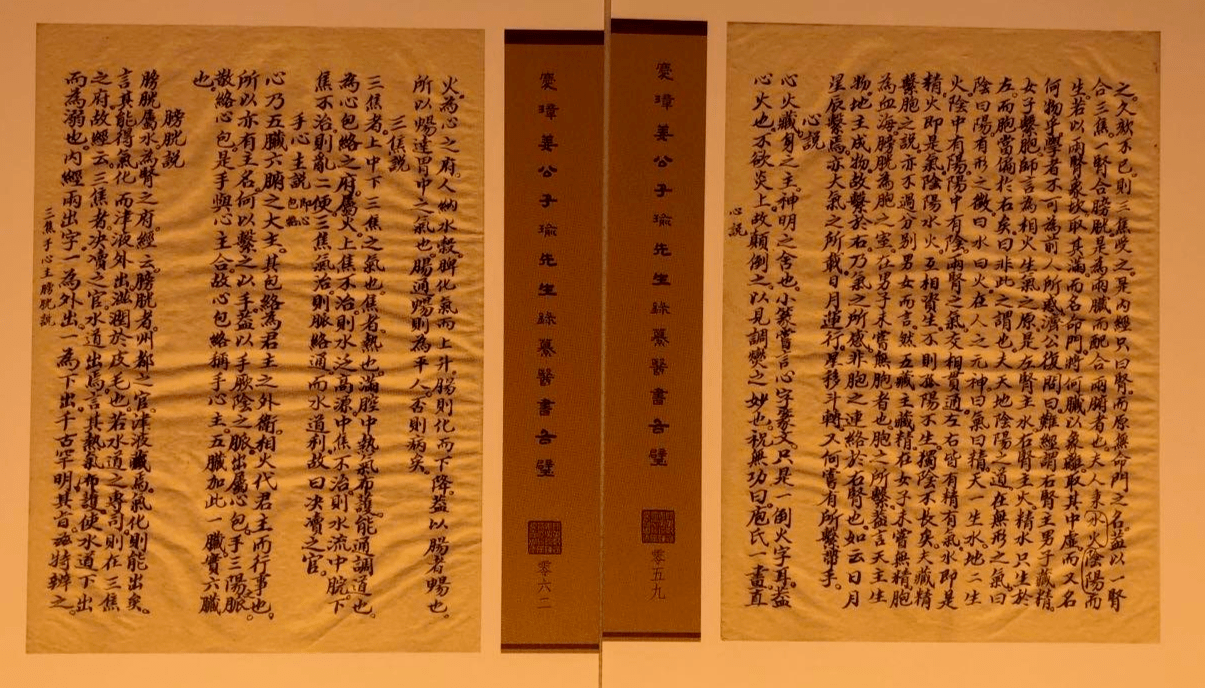 之久欬不已。則三焦受之。是內經只曰腎。而原無命門之名。益以一腎
合三焦。一腎合膀胱。是為兩臟。而配合兩腑者也。夫人秉水火陰陽而
生。若以兩腎象坎。取其滿而名命門。將何臟以象離。取其中虛而又名
何物乎。學者不可為前人所惑。濟公復問曰。難經謂右腎主男子藏精。
女子繫胞。師言為相火生氣之原。是左腎主水。右腎主火。精水只生於
左。而胞當偏於右矣。曰非此之謂也。夫天地陰陽之道。在無形之氣曰
陰曰陽。有形之徵曰水曰火。在人之元神曰氣曰精。天一生水。地二生
火。陰中有陽。陽中有陰。兩腎之氣。交相貫通。左右皆有精有氣。水即是
精。火即是氣。陰陽水火。互相資生。否則孤陽不生。獨陰不長矣。夫藏精
繫胞之說。亦不過分別男女而言。然五臟主藏精。在女子未嘗無精。胞
為血海。膀胱為胞之室。在男子未嘗無胞者也。胞之所繫。蓋言天主生
物。地主成物。故繫於右。乃氣之所感。非胞之連絡於右腎也。如云日月
星辰繫焉。亦大氣之所載。日月運行。星移斗轉。又何嘗有所繫帶乎。
心說
心火臟。身之主。神明之舍也。小篆嘗言心字篆文。只是一倒火字耳。蓋
心火也。不欲炎上。故顛倒之。以見調燮之妙也。祝無功曰。庖氏一畫直
心說
燮璋姜公子瑜先生錄纂醫書合璧
零五九
燮璋姜公子瑜先生錄纂醫書合璧
零六二
火為心之府。人納水穀。脾化氣而上升。腸則化而下降。蓋以腸者暢也。
所以暢達胃中之氣也。腸通暢則為平人。否則病矣。
三焦說
三焦者。上中下三焦之氣也。焦者。熱也。滿腔中熱氣布護。能通調道也。
為心包絡之府。屬火。上焦不治。則水泛高源。中焦不治。則水流中脘。下
焦不治。則亂二便。三焦氣治。則脈絡通而水道利。故曰決瀆之官。
手心主說 即心包絡
心乃五臟六腑之大主。其包絡為君主之外衛。相火代君主而行事也。
所以亦有主名。何以繫之以手。蓋以手厥陰之脈。出屬心包。手三陽之脈。
散絡心包。是手與心主合。故心包絡稱手心主。五臟加此一臟。實六臟
也。
膀胱說
膀胱屬水。為腎之府。經云。膀胱者。州都之官。津液藏焉。氣化則能出矣。
言其能得氣化。而津液外出。滋潤於皮毛也。若水道之專司。則在三焦
之府。故經云。三焦者。決瀆之官。水道出焉。言其熱氣布護。使水道下出
而為溺也。內經兩出字。一為外出。一為下出。千古罕明其旨。茲特辨之。
三焦手心主膀胱說